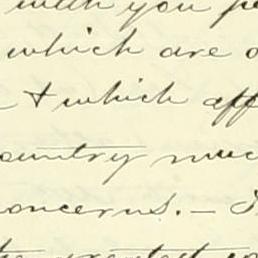 with you
which are
& which aff
ountry muc
oncerns. –